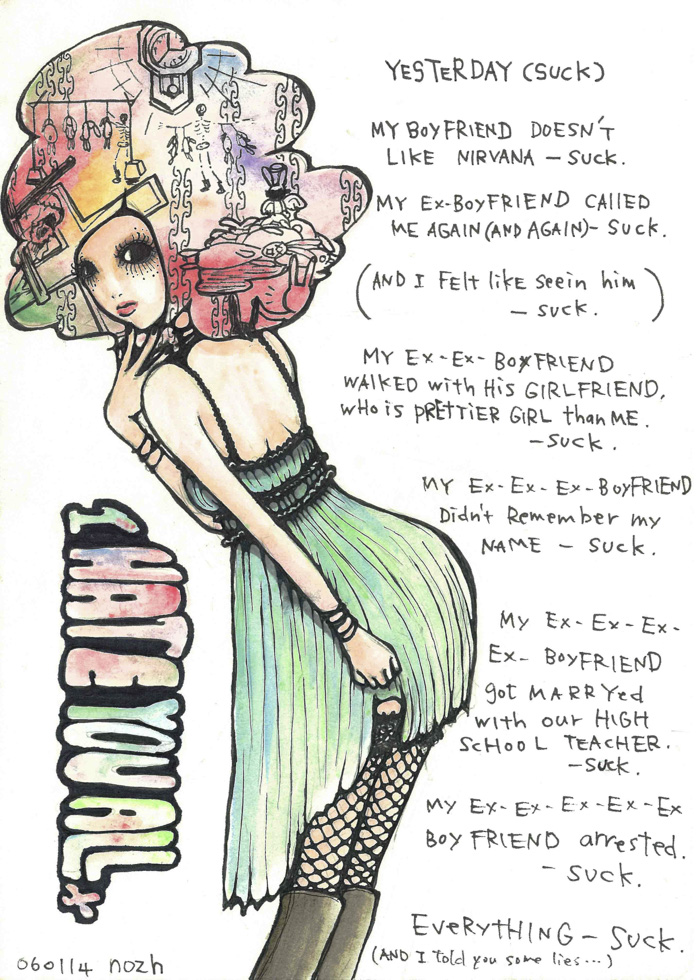 YESTERDAY (SUCK)
MY BOYFRIEND DOESN'T
LIKE NIRVANA – SUCK.
MY Ex-BOYFRIEND CAllED
ME AGAIN (AND AGAIN) – SUCK.
(AND I Felt like seein him
– SUCK. )
MY Ex-Ex-BOYFRIEND
WALKED with His GIRLFRIEND,
WHO is PRETTIER GIRL than ME.
– SUCK.
MY Ex-Ex-Ex-BOYFRIEND
Didn't Remember my
NAME – SUCK.
MY Ex-Ex-Ex-
Ex-BOYFRIEND
got MARRYed
with our HIGH
SCHOOL TEACHER.
– SUCK.
MY Ex-Ex-Ex-Ex-Ex
BOYFRIEND arrested.
– SUCK.
EVERYTHING – SUCK.
(AND I told you some lies...)
I HATE YOU ALL
060114 nozh